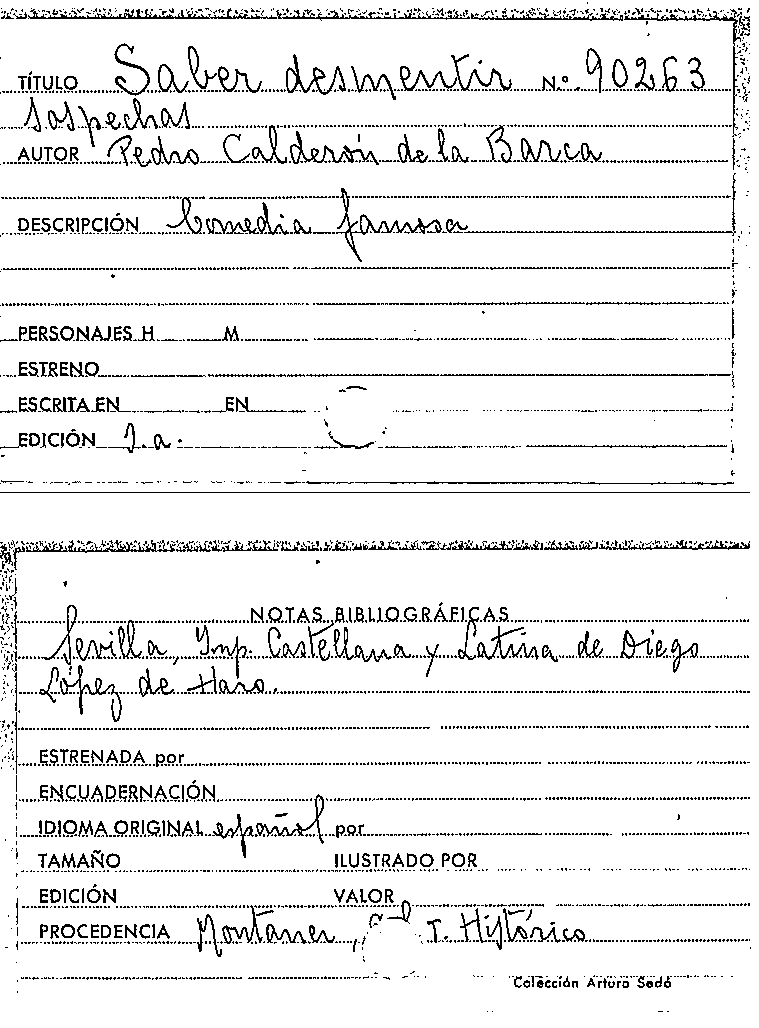 TÍTULO Saber desmentir N.º 90263
sospechas
AUTOR Pedro Calderón de la Barca
DESCRIPCIÓN Comedia famosa
PERSONAJES H M
ESTRENO
ESCRITA EN EN
EDICIÓN S.a.
NOTAS BIBLIOGRÁFICAS
Sevilla, Imp. Castellana y Latina de Diego
López de Haro.
ESTRENADA por
ENCUADERNACIÓN
IDIOMA ORIGINAL español por
TAMAÑO ILUSTRADO POR
EDICIÓN VALOR
PROCEDENCIA Montaner, T. Histórico
Colección Arturo Sedó